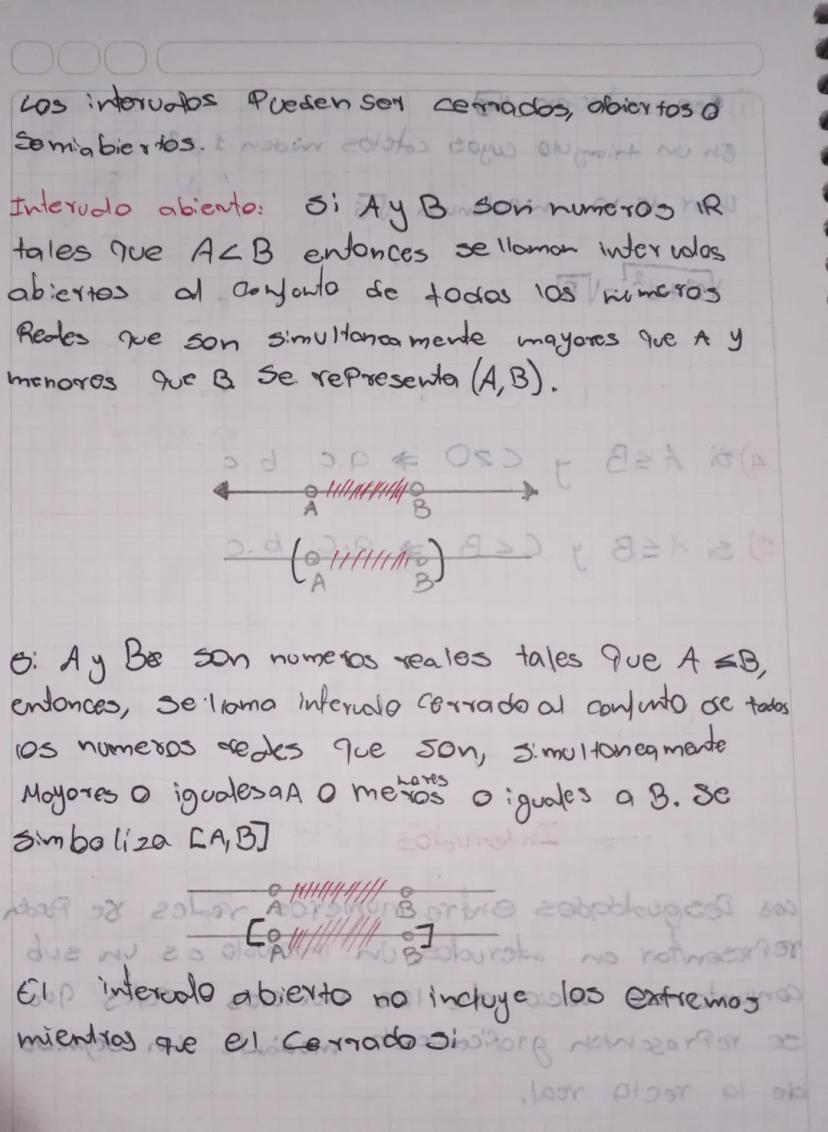 Los intervalos Pueden ser cerrados, abiertos o
Semiabiertos.
Intervalo abierto: Si A y B son numeros IR
tales que A<B entonces se llaman intervalos
abiertos al conjunto de todos los numeros
Reales que son simultaneamente mayores que A y
menores que B. Se representa (A,B).
A B
( A B )
Si A y B son numeros reales tales que A ≤B,
entonces, se llama intervalo cerrado al conjunto de todos
los numeros reales que son, simultaneamente
Mayores o iguales a A o menores o iguales a B. Se
simboliza [A,B]
A B
[ A B ]
El intervalo abierto no incluye los extremos
mientras que el cerrado si